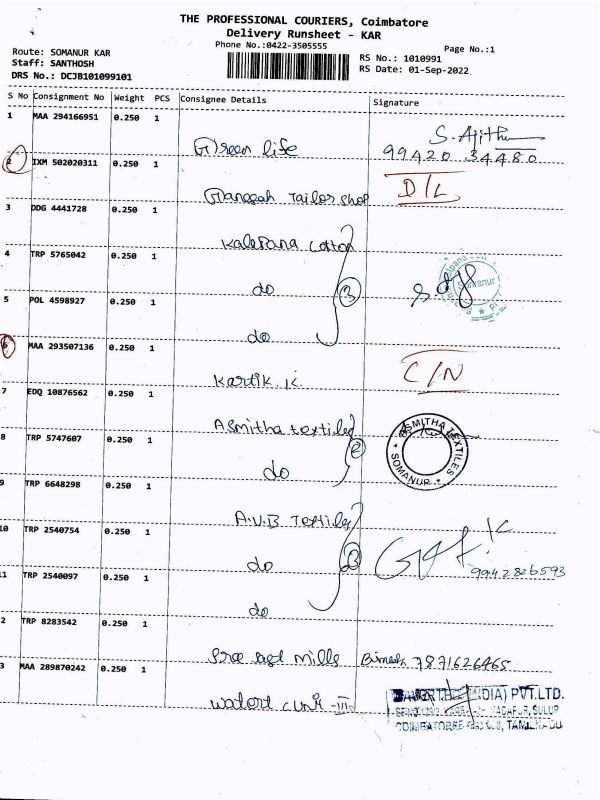 THE PROFESSIONAL COURIERS, Coimbatore
Delivery Runsheet - KAR
Phone No.:0422-3505555
Page No.:1
Route: SOMANUR KAR
Staff: SANTHOSH
DRS No.: DCJB101099101
RS No.: 1010991
RS Date: 01-Sep-2022
S No Consignment No Weight PCS Consignee Details Signature
1 MAA 294166951 0.250 1
Green life S. Ajith
99420 34480
2 IXM 502020311 0.250 1
Ganesah Tailor shop D/L
3 DDG 4441728 0.250 1
Kalepana Cotton
4 TRP 5765042 0.250 1
do 3
5 POL 4598927 0.250 1
do
6 MAA 293507136 0.250 1
Kartik K. C/N
7 EDQ 10876562 0.250 1
Asmitha textiles ASMITHA TEXTILES
SOMANUR
8 TRP 5747607 0.250 1
do 2
9 TRP 6648298 0.250 1
A.V.B Textiles
10 TRP 2540754 0.250 1
do 3 9942826593
11 TRP 2540097 0.250 1
do
2 TRP 8283542 0.250 1
Sree mills 7871626465
3 MAA 289870242 0.250 1
unit - III (INDIA) PVT.LTD.
SULUR
COIMBATORE TAMIL NADU